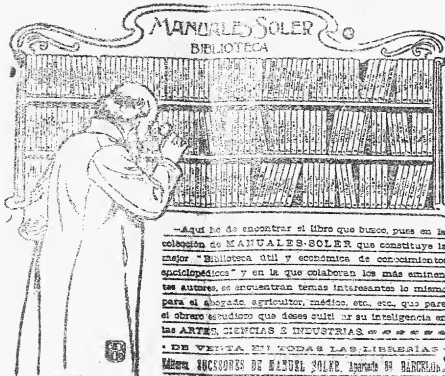 MANUALES SOLER
BIBLIOTECA
—Aquí he de encontrar el libro que busco, pues en la
colección de MANUALES-SOLER que constituye la
mejor "Biblioteca útil y económica de conocimientos
enciclopédicos" y en la que colaboran los más eminen-
tes autores, se encuentran temas interesantes lo mismo
para el abogado, agricultor, médico, etc., etc., que para
el obrero estudioso que desee cultivar su inteligencia en
las ARTES, CIENCIAS E INDUSTRIAS
DE VENTA EN TODAS LAS LIBRERÍAS
SUCESORES DE MANUEL SOLER, Apartado 89 BARCELONA